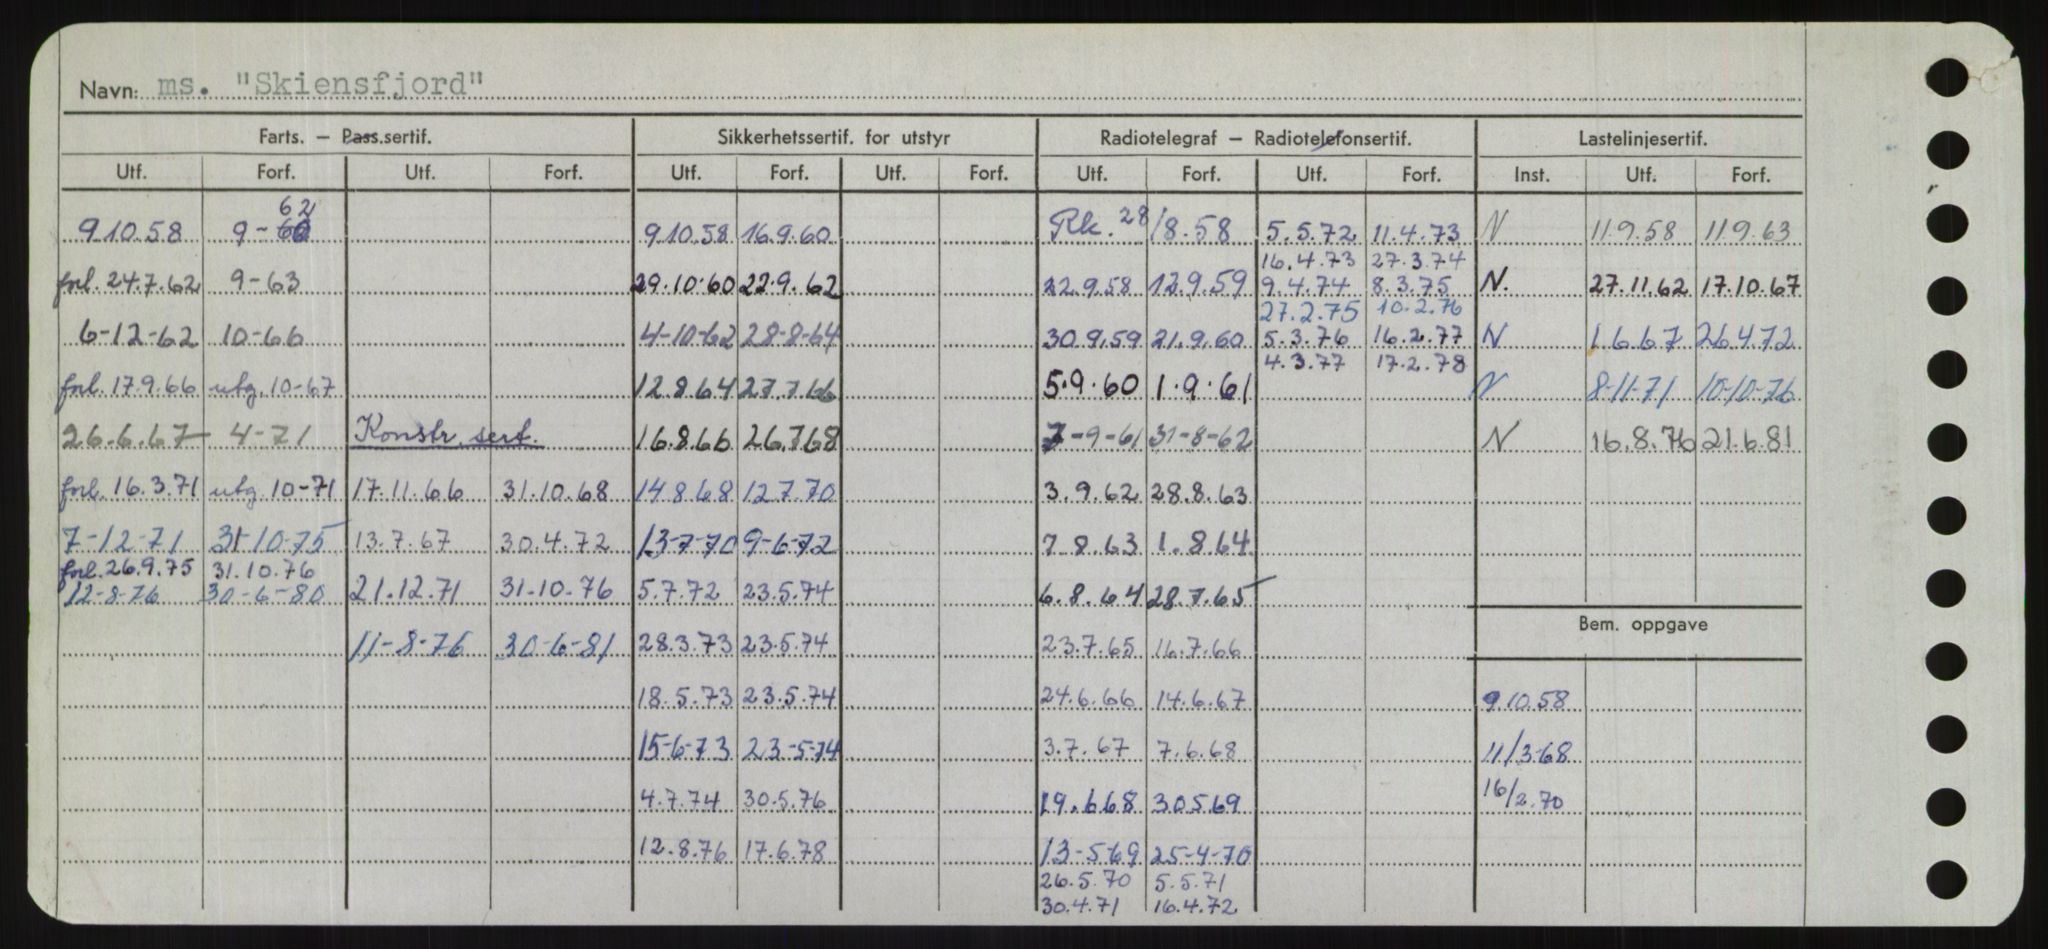 Navn: ms. "Skiensfjord"
Farts. — Pass.sertif. Sikkerhetssertif. for utstyr Radiotelegraf — Radiotelefonsertif. Lastelinjesertif.
Utf. Forf. Utf. Forf. Utf. Forf. Utf. Forf. Utf. Forf. Utf. Forf. Inst. Utf. Forf.
62
9.10.58 9-60 9.10.58 16.9.60 Rk. 28/8.58 5.5.72 11.4.73 N 11.9.58 11.9.63
16.4.73 27.3.74
forl. 24.7.62 9-63 29.10.60 22.9.62 22.9.58 12.9.59 9.4.74 8.3.75 N. 27.11.62 17.10.67
27.2.75 10.2.76
6-12-62 10-66 4-10-62 28-8-64 30.9.59 21.9.60 5.3.76 16.2.77 N 1.6.67 26.4.72
4.3.77 17.2.78
forl. 17.9.66 utg. 10-67 12.8.64 27.7.66 5.9.60 1.9.61 N 8-11-71 10-10-76
26.6.67 4-71 Konstr. sert. 16.8.66 26.7.68 7-9-61 31-8-62 N 16.8.76 21.6.81
forl. 16.3.71 utg. 10-71 17.11.66 31.10.68 14.8.68 12.7.70 3.9.62 28.8.63
7-12-71 31-10-75 13.7.67 30.4.72 13-7-70 9-6-72 7.8.63 1.8.64
forl. 26.9.75 31.10.76
12-8-76 30-6-80 21.12.71 31.10.76 5.7.72 23.5.74 6.8.64 28.7.65
Bem. oppgave
11-8-76 30-6-81 28.3.73 23.5.74 23.7.65 16.7.66
18.5.73 23.5.74 24.6.66 14.6.67 9.10.58
15-6-73 23-5-74 3.7.67 7.6.68 11/3-68
4.7.74 30.5.76 19.6.68 30.5.69 16/2.70
12.8.76 17.6.78 13-5-69 25-4-70
26.5.70 5.5.71
30.4.71 16.4.72